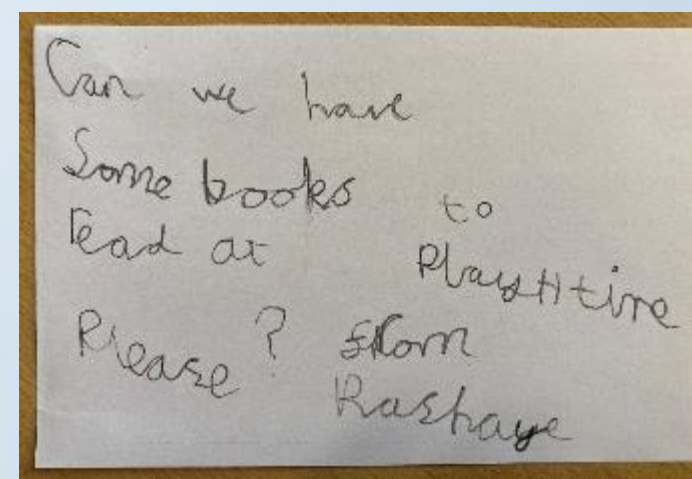 Can we have
Some books to
read at Playtime
Please? from
Rashaye